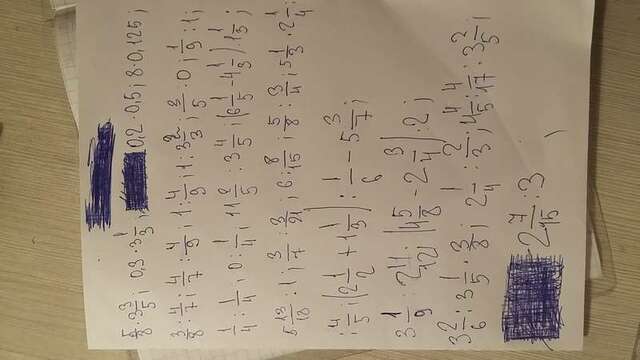 5/8 · 3 3/5; 0,3 · 3 1/3; 0,2 · 0,5; 8 · 0,125;
3/8 : 4/7; 4/7 : 4/9; 1 : 4/9; 1 : 3 2/3; 3/5 · 0; 1/9 : 1;
1/4 : 1/4; 0 : 1/4; 11 2/5 : 3 4/5; (6 1/5 - 4 1/3) : 1 1/3;
5 13/18 : 1; 3/7 : 3/21; 6 : 8/15; 5/8 : 3/4; 5 1/3 · 2 1/4
: 4/5; (2 1/2 + 1 1/3) : 1/6 - 5 3/7;
3 1/9 : 2 11/12; (4 5/8 - 2 3/4) : 2;
3 2/6 : 3 1/5 · 3/8; 2 1/4 : 2/3; 4 4/5 : 4/17 : 3 2/5;
2 7/15 : 3